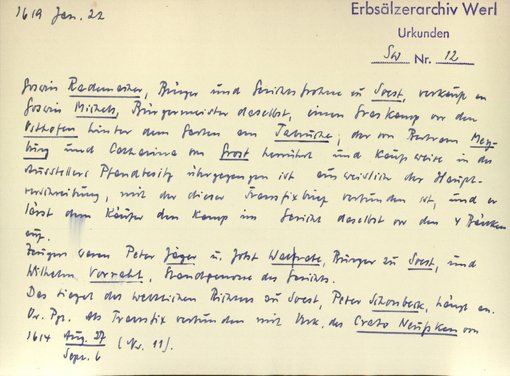 1619 Jan. 22
Erbsälzerarchiv Werl
Urkunden
Sw Nr. 12
Goswin Rademacher, Bürger und Gerichtsfrohne zu Soest, verkauft an
Goswin Michels, Bürgermeister daselbst, einen Graskamp vor den
Osthofen hinter dem Garten am, der von Bertram Mey-
burg und Catharina von Grost herrührt und kaufweise in des
Ausstellers Pfandbesitz übergegangen ist ausweislich der Haupt-
verschreibung, mit der dieser Transfixbrief verbunden ist, und er
lässt dem Käufer den Kamp im Gericht daselbst vor den 4 Bänken
auf.
Zeugen waren Peter Jäger u. Jobst, Bürger zu Soest, und
Wilhelm, Standgenosse des Gerichts.
Das Siegel des weltlichen Richters zu Soest, Peter Schonbeck, hängt an.
Or. Pgt. Als Transfix verbunden mit Urk. des von
1614 Aug. 27 (Nr. 11).
Sept. 6